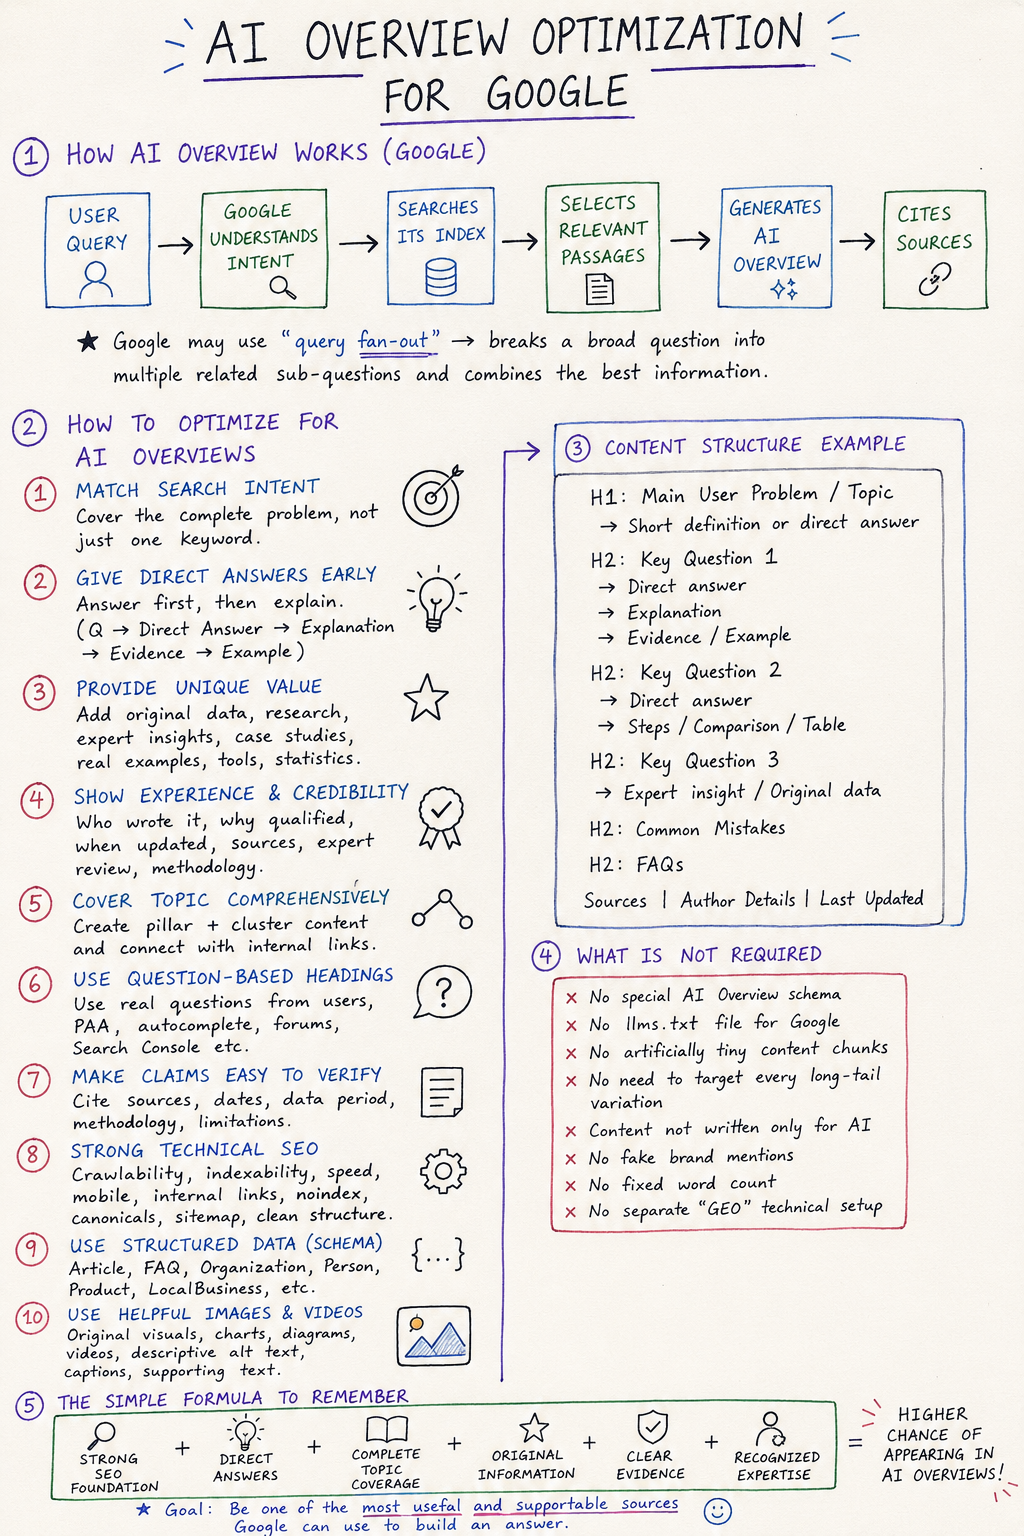 AI OVERVIEW OPTIMIZATION
FOR GOOGLE
1 HOW AI OVERVIEW WORKS (GOOGLE)
USER
QUERY
→
GOOGLE
UNDERSTANDS
INTENT
→
SEARCHES
ITS INDEX
→
SELECTS
RELEVANT
PASSAGES
→
GENERATES
AI
OVERVIEW
→
CITES
SOURCES
★ Google may use "query fan-out" → breaks a broad question into
multiple related sub-questions and combines the best information.
2 HOW TO OPTIMIZE FOR
AI OVERVIEWS
1 MATCH SEARCH INTENT
Cover the complete problem, not
just one keyword.
2 GIVE DIRECT ANSWERS EARLY
Answer first, then explain.
(Q → Direct Answer → Explanation
→ Evidence → Example)
3 PROVIDE UNIQUE VALUE
Add original data, research,
expert insights, case studies,
real examples, tools, statistics.
4 SHOW EXPERIENCE & CREDIBILITY
Who wrote it, why qualified,
when updated, sources, expert
review, methodology.
5 COVER TOPIC COMPREHENSIVELY
Create pillar + cluster content
and connect with internal links.
6 USE QUESTION-BASED HEADINGS
Use real questions from users,
PAA, autocomplete, forums,
Search Console etc.
?
7 MAKE CLAIMS EASY TO VERIFY
Cite sources, dates, data period,
methodology, limitations.
8 STRONG TECHNICAL SEO
Crawlability, indexability, speed,
mobile, internal links, noindex,
canonicals, sitemap, clean structure.
9 USE STRUCTURED DATA (SCHEMA)
Article, FAQ, Organization, Person,
Product, LocalBusiness, etc.
{...}
10 USE HELPFUL IMAGES & VIDEOS
Original visuals, charts, diagrams,
videos, descriptive alt text,
captions, supporting text.
3 CONTENT STRUCTURE EXAMPLE
H1: Main User Problem / Topic
→ Short definition or direct answer
H2: Key Question 1
→ Direct answer
→ Explanation
→ Evidence / Example
H2: Key Question 2
→ Direct answer
→ Steps / Comparison / Table
H2: Key Question 3
→ Expert insight / Original data
H2: Common Mistakes
H2: FAQs
Sources | Author Details | Last Updated
4 WHAT IS NOT REQUIRED
× No special AI Overview schema
× No llms.txt file for Google
× No artificially tiny content chunks
× No need to target every long-tail
variation
× Content not written only for AI
× No fake brand mentions
× No fixed word count
× No separate "GEO" technical setup
5 THE SIMPLE FORMULA TO REMEMBER
STRONG
SEO
FOUNDATION
+
DIRECT
ANSWERS
+
COMPLETE
TOPIC
COVERAGE
+
ORIGINAL
INFORMATION
+
CLEAR
EVIDENCE
+
RECOGNIZED
EXPERTISE
=
HIGHER
CHANCE OF
APPEARING IN
AI OVERVIEWS!
★ Goal: Be one of the most useful and supportable sources
Google can use to build an answer.